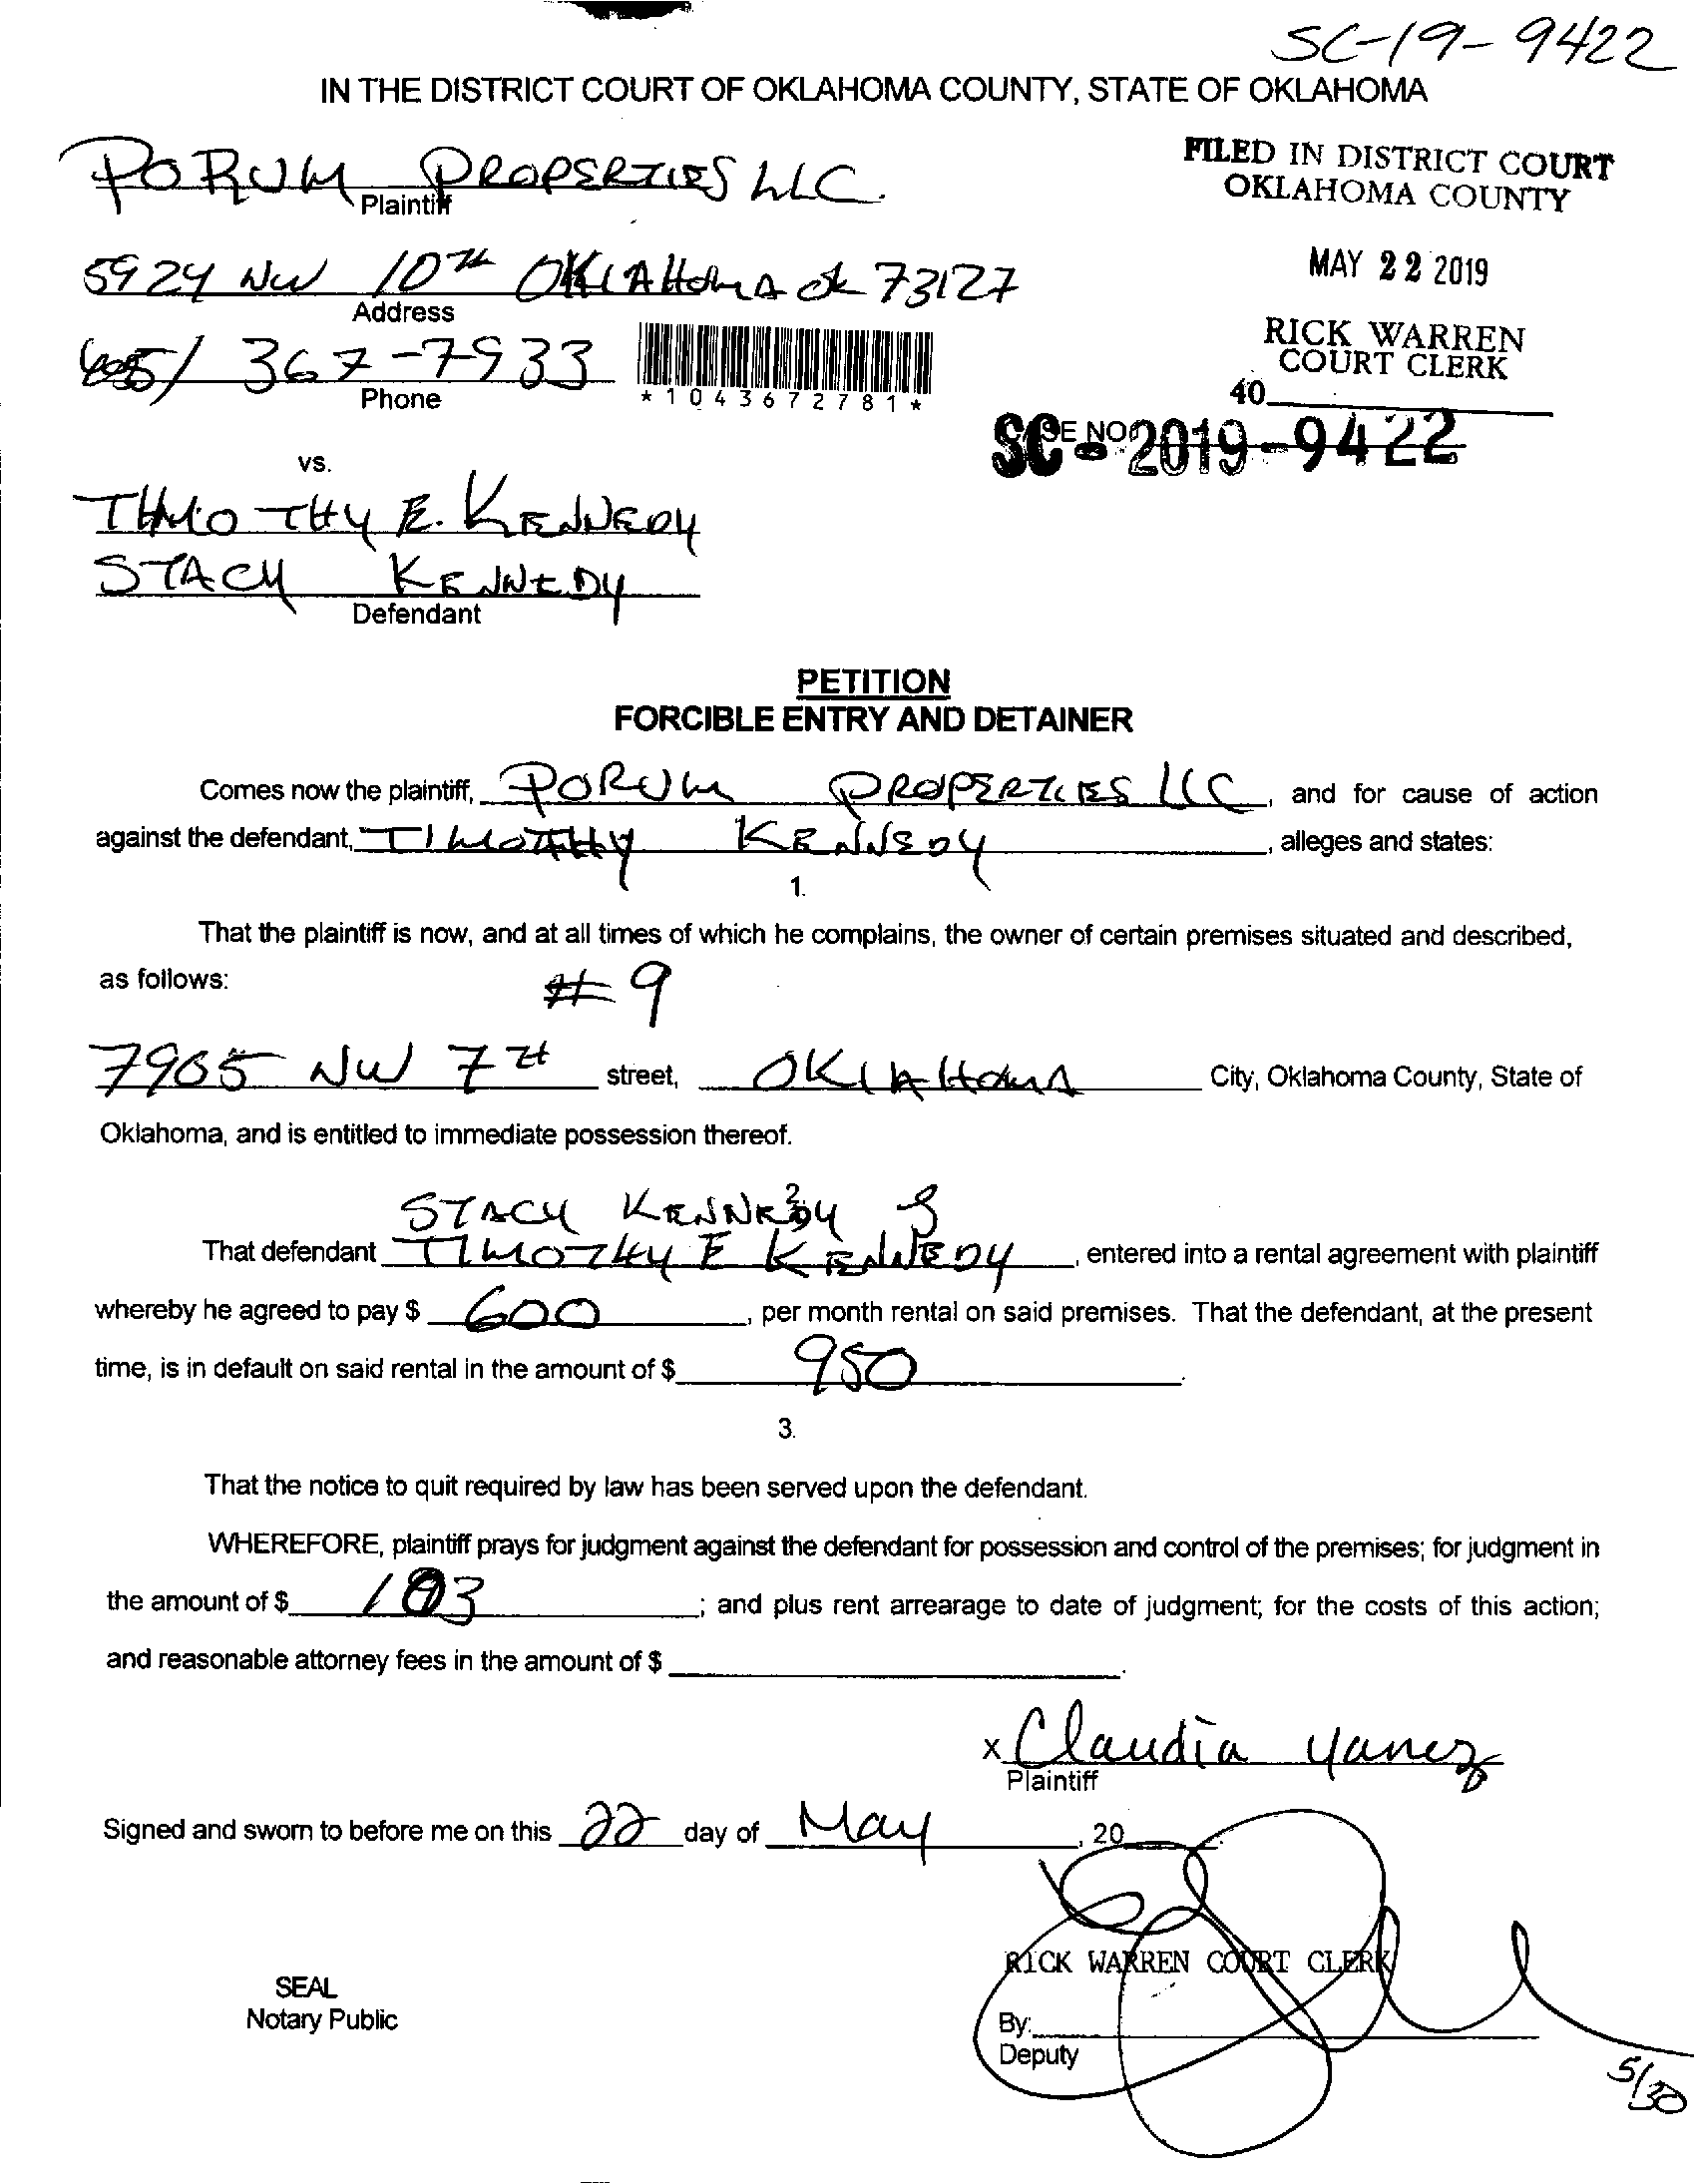 SC-19-9422
IN THE DISTRICT COURT OF OKLAHOMA COUNTY, STATE OF OKLAHOMA
PORUM PROPERTIES LLC.
Plaintiff
FILED IN DISTRICT COURT
OKLAHOMA COUNTY
5924 NW 10TH OKLAHOMA OK 73127
Address
MAY 22 2019
405/ 367-7933
Phone
*1043672781*
RICK WARREN
COURT CLERK
40
CASE NO.
SC-2019-9422
vs.
TIMOTHY E. KENNEDY
STACY KENNEDY
Defendant
PETITION
FORCIBLE ENTRY AND DETAINER
Comes now the plaintiff, PORUM PROPERTIES LLC, and for cause of action
against the defendant, TIMOTHY KENNEDY, alleges and states:
1.
That the plaintiff is now, and at all times of which he complains, the owner of certain premises situated and described,
as follows:
#9
7905 NW 7TH street, OKLAHOMA City, Oklahoma County, State of
Oklahoma, and is entitled to immediate possession thereof.
2.
STACY KENNEDY &
That defendant TIMOTHY E KENNEDY, entered into a rental agreement with plaintiff
whereby he agreed to pay $ 600, per month rental on said premises. That the defendant, at the present
time, is in default on said rental in the amount of $ 950.
3.
That the notice to quit required by law has been served upon the defendant.
WHEREFORE, plaintiff prays for judgment against the defendant for possession and control of the premises; for judgment in
the amount of $ ; and plus rent arrearage to date of judgment; for the costs of this action;
and reasonable attorney fees in the amount of $ .
x Claudia Yanez
Plaintiff
Signed and sworn to before me on this 22 day of May, 20
RICK WARREN COURT CLERK
SEAL
Notary Public
By:
Deputy
5/30